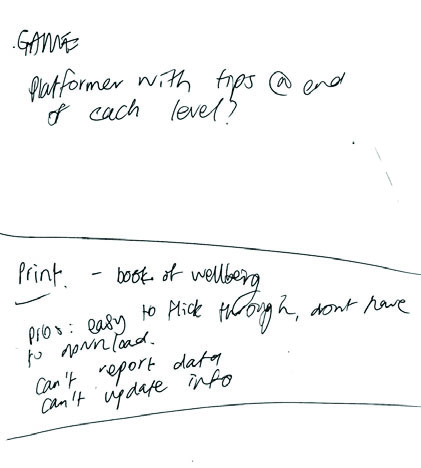 .GAME
Platformer with tips @ end
of each level?
Print. - book of wellbeing
pros: easy to flick through, dont have
to download.
can't report data
can't update info